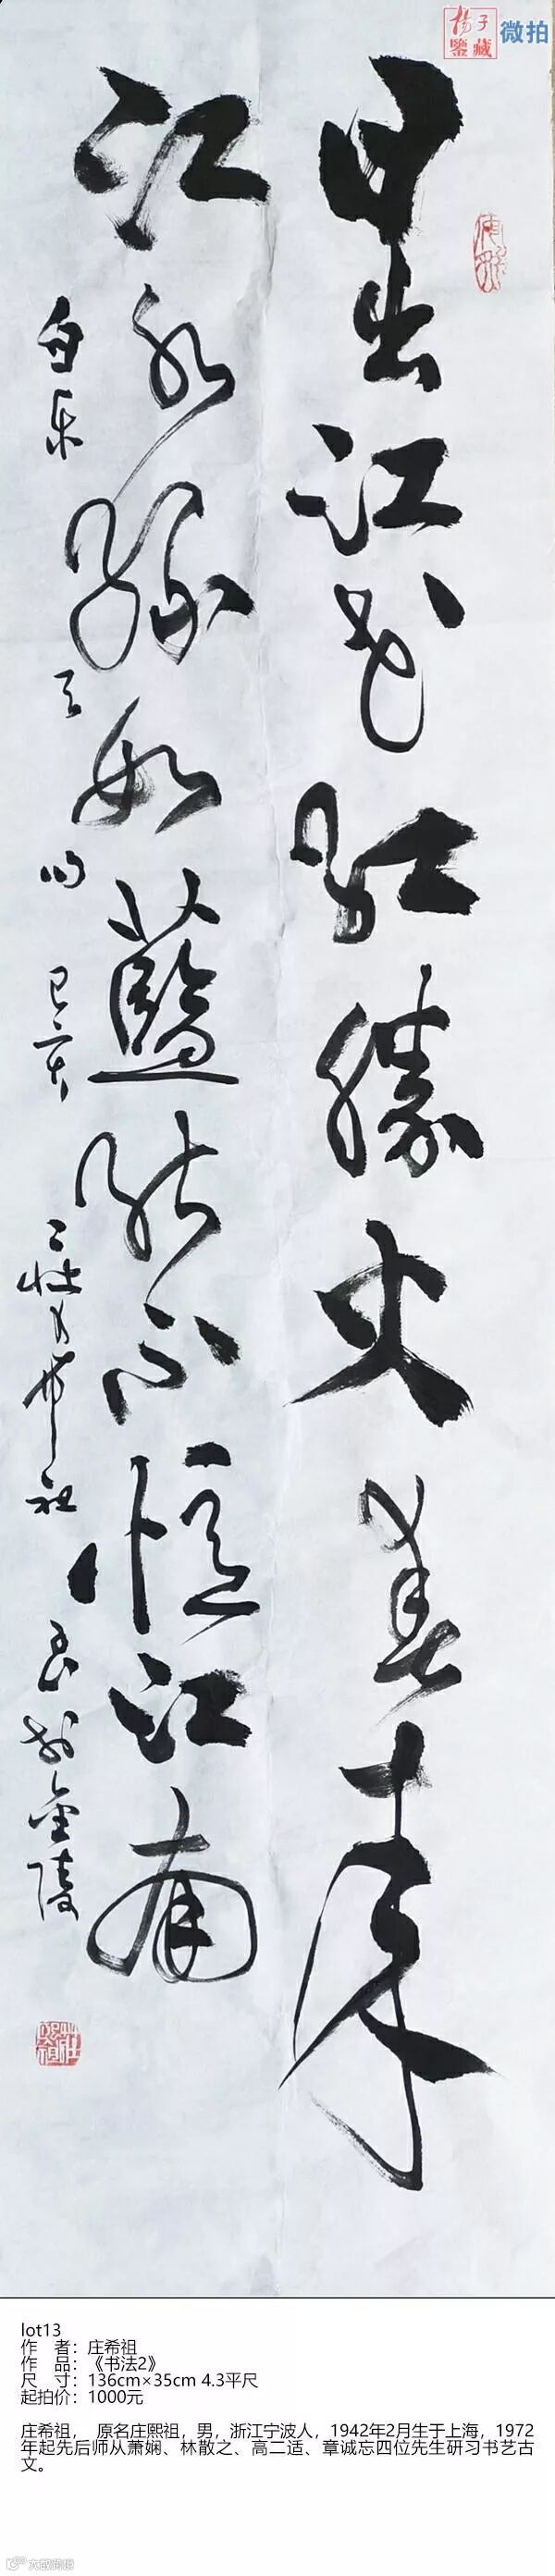 揚子
鑒藏
微拍
日出江花紅勝火春來
江水綠如藍能不憶江南
白乐天词 己亥 莊希祖 書於金陵
lot13
作 者：庄希祖
作 品：《书法2》
尺 寸：136cm×35cm 4.3平尺
起拍价：1000元
庄希祖， 原名庄熙祖，男，浙江宁波人，1942年2月生于上海，1972
年起先后师从萧娴、林散之、高二适、章诚忘四位先生研习书艺古
文。